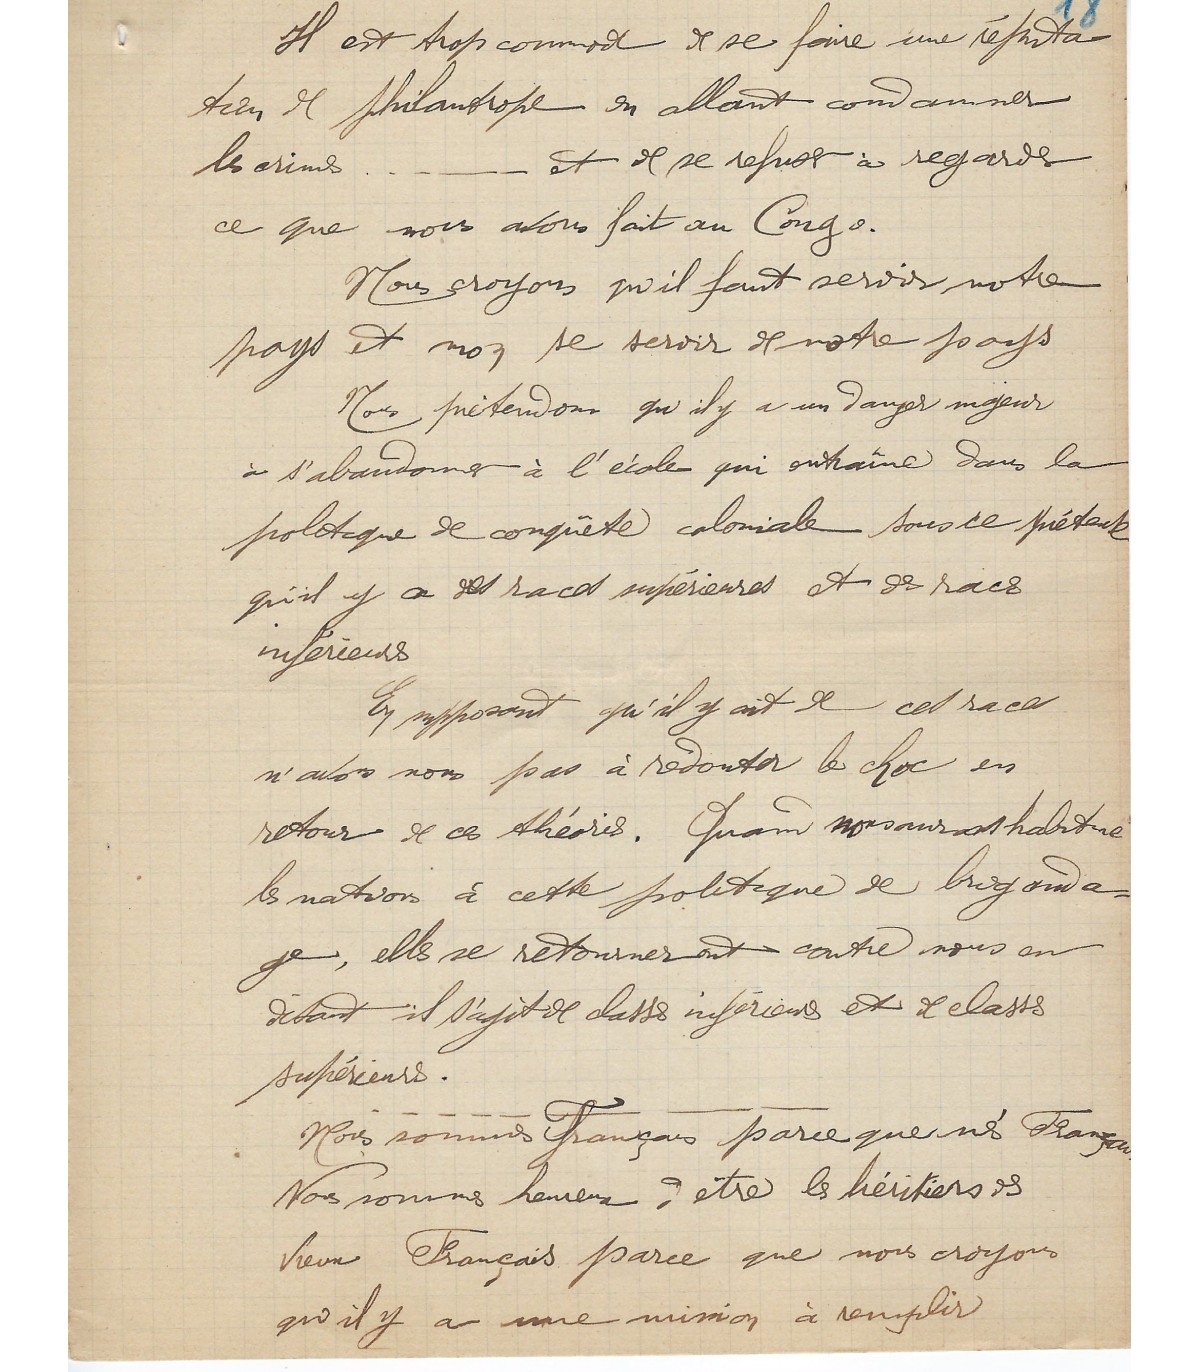 18
Il est trop commode de se faire une réputa
tion de philantrope en allant condamner
les crimes . . ——— et de se refuser à regarder
ce que nous avons fait au Congo.
Nous croyons qu'il faut servir notre
pays et non se servir de notre pays
Nous prétendons qu'il y a un danger majeur
à s'abandonner à l'école qui entraîne dans la
politique de conquête coloniale sous ce prétexte
qu'il y a des races supérieures et des races
inférieures
En supposant qu'il y ait de ces races
n'avons nous pas à redouter le choc en
retour de ces théories. Quand nous aurons habitué
les nations à cette politique de briganda-
ge, elles se retourneront contre nous en
disant il s'agit de classes inférieures et de classes
supérieures.
Nous sommes Français parce que nés Français
Nous sommes heureux d'être les héritiers des
vieux Français parce que nous croyons
qu'il y a une mission à remplir